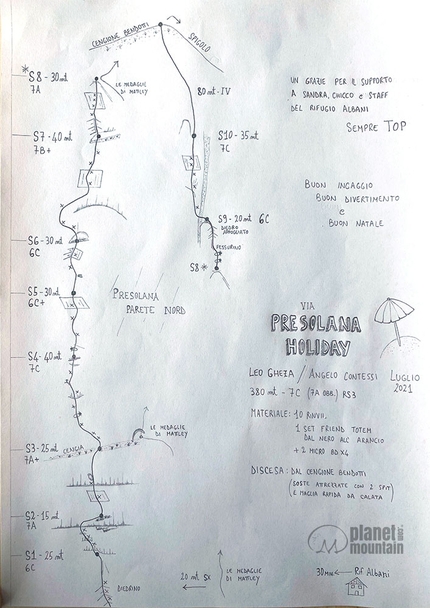 CENGIONE BENDOTTI
SPIGOLO
*S8 - 30 mt
7A
LE MEDAGLIE
DI MATLEY
80 mt - IV
S7 - 40 mt
7B+
S10 - 35 mt
7C
S9 - 20 mt 6C
DIEDRO
FESSURINO
S8 *
S6 - 30 mt
6C
S5 - 30 mt
6C+
PRESOLANA
PARETE NORD
S4 - 40 mt
7C
LE MEDAGLIE
DI MATLEY
S3 - 25 mt
7A+
CENGIA
S2 - 15 mt
7A
S1 - 25 mt
6C
DIEDRINO
20 mt SX
LE MEDAGLIE
DI MATLEY
UN GRAZIE PER IL SUPPORTO
A SANDRA, CHICCO e STAFF
DEL RIFUGIO ALBANI
SEMPRE TOP
BUON INGAGGIO
BUON DIVERTIMENTO
e
BUON NATALE
VIA
PRESOLANA
HOLIDAY
LEO GHEZA / ANGELO CONTESSI
LUGLIO
2021
380 mt - 7C (7A OBB.) RS3
MATERIALE: 10 RINVII,
1 SET FRIEND TOTEM
DAL NERO AL ARANCIO
+ 2 MICRO BD X4
DISCESA: DAL CENGIONE BENDOTTI
(SOSTE ATTREZZATE CON 2 SPIT
e MAGLIA RAPIDA DA CALATA)
planet
mountain
.com
30min
RIF ALBANI